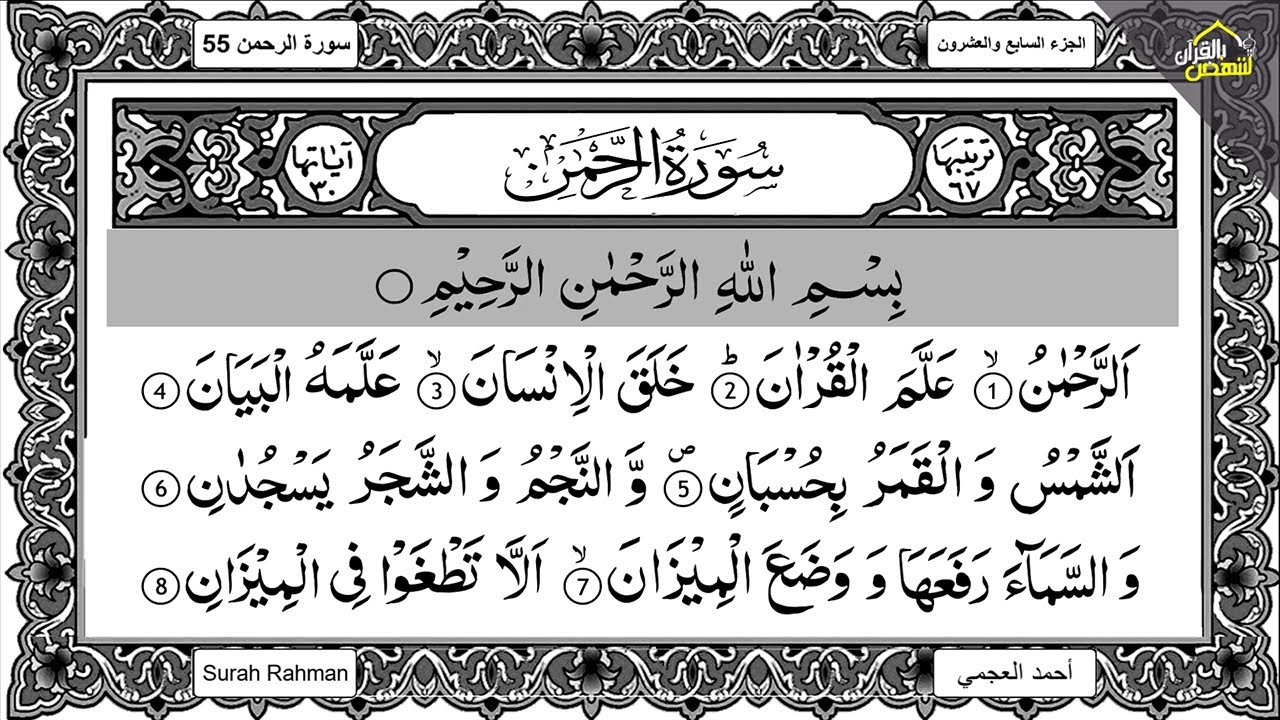 الجزء السابع والعشرون
سورة الرحمن 55
لننهض بالقرآن
ترتيبها ٦٧
سُورَةُ الرَّحْمٰن
آيَاتها ٣٠
بِسْمِ اللهِ الرَّحْمٰنِ الرَّحِيْمِ ○
اَلرَّحْمٰنُ ۙ① عَلَّمَ الْقُرْاٰنَ ؕ② خَلَقَ الْاِنْسَانَ ۙ③ عَلَّمَهُ الْبَيَانَ ④
اَلشَّمْسُ وَ الْقَمَرُ بِحُسْبَانٍ ۪⑤ وَّ النَّجْمُ وَ الشَّجَرُ يَسْجُدٰنِ ⑥
وَ السَّمَآءَ رَفَعَهَا وَ وَضَعَ الْمِيْزَانَ ۙ⑦ اَلَّا تَطْغَوْا فِى الْمِيْزَانِ ⑧
أحمد العجمي
Surah Rahman